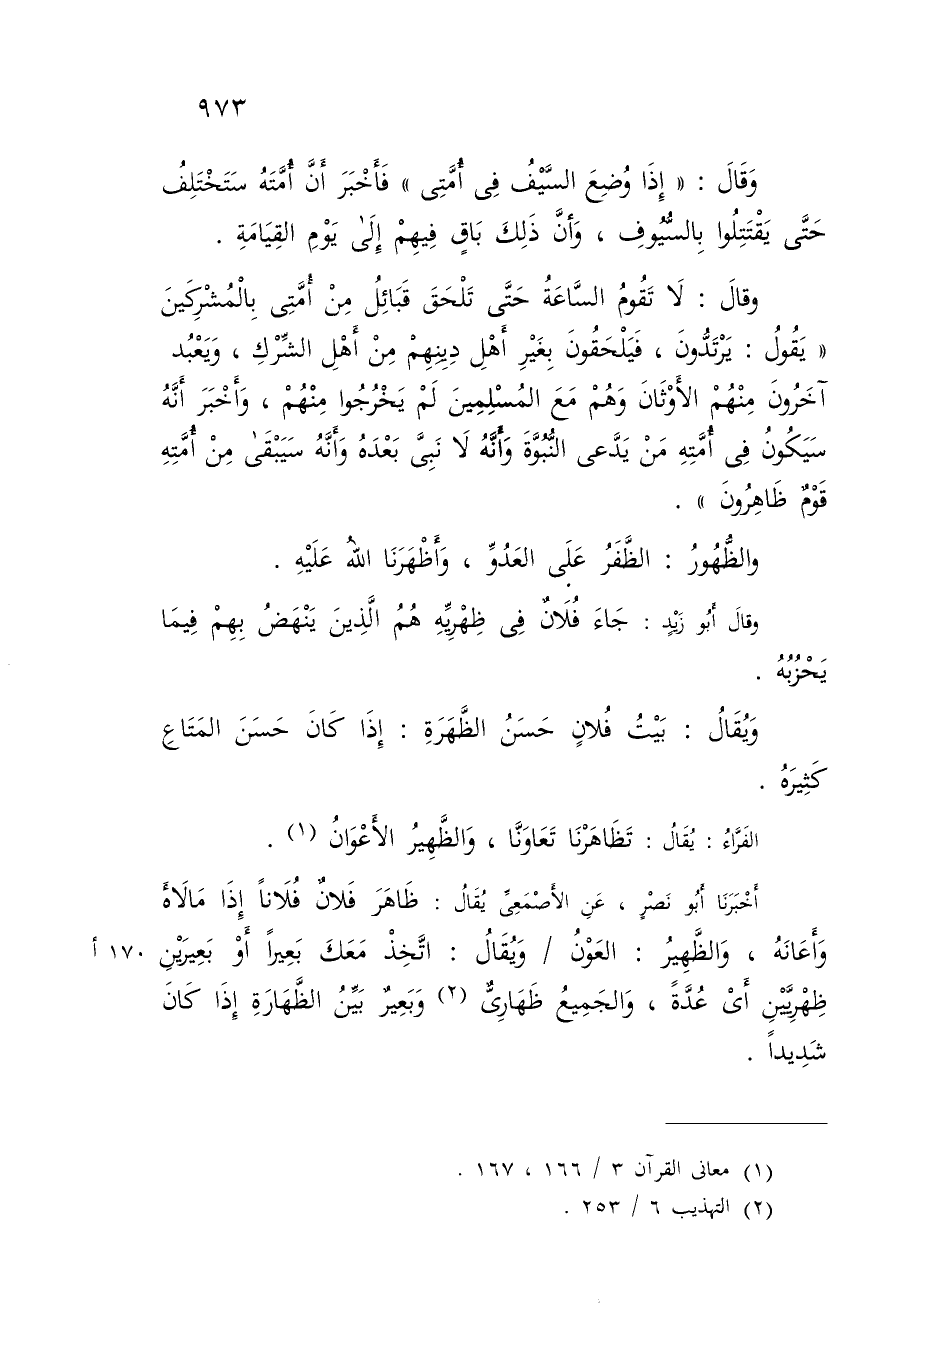 ٩٧٣
وَقَالَ : « إِذَا وُضِعَ السَّيْفُ فِى أُمَّتِى » فَأَخْبَرَ أَنَّ أُمَّتَهُ سَتَخْتَلِفُ
حَتَّى يَقْتَتِلُوا بِالسُّيُوفِ ، وَأنَّ ذَلِكَ بَاقٍ فِيهِمْ إِلَىٰ يَوْمِ القِيَامَةِ .
وقالَ : لَا تَقُومُ السَّاعَةُ حَتَّى تَلْحَقَ قَبَائِلُ مِنْ أُمَّتِى بِالْمُشْرِكَينَ
« يَقُولُ : يَرْتَدُّونَ ، فَيَلْحَقُونَ بِغَيْرِ أَهْلِ دِينِهِمْ مِنْ أَهْلِ الشِّرْكِ ، وَيَعْبُد
آخَرُونَ مِنْهُمْ الأَوْثَانَ وَهُمْ مَعَ المُسْلِمِينَ لَمْ يَخْرُجُوا مِنْهُمْ ، وَأَخْبَرَ أَنَّهُ
سَيَكُونُ فِى أُمَّتِهِ مَنْ يَدَّعى النُّبُوَّةَ وَأَنَّهُ لَا نَبِىَّ بَعْدَهُ وَأَنَّهُ سَيَبْقَىٰ مِنْ أُمَّتِهِ
قَوْمٌ ظَاهِرُونَ » .
والظُّهُورُ : الظَّفَرُ عَلَى العَدُوِّ ، وَأَظْهَرَنَا اللهُ عَلَيْهِ .
وقالَ أَبُو زَيْدٍ : جَاءَ فُلَانٌ فِى ظِهْرِيِّهِ هُمُ الَّذِينَ يَنْهَضُ بِهِمْ فِيمَا
يَحْزُبُهُ .
وَيُقَالُ : بَيْتُ فُلانٍ حَسَنُ الظَّهَرَةِ : إِذَا كَانَ حَسَنَ المَتَاعِ
كَثِيرَهُ .
الفَرَّاءُ : يُقَالُ : تَظَاهَرْنَا تَعَاوَنَّا ، وَالظَّهِيرُ الأَعْوَانُ (١) .
أَخْبَرَنَا أَبُو نَصْرٍ ، عَنِ الأَصْمَعِىِّ يُقَالُ : ظَاهَرَ فَلانٌ فُلَاناً إِذَا مَالَأهَ
وَأَعَانَهُ ، وَالظَّهِيرُ : العَوْنُ / وَيُقَالُ : اتَّخِذْ مَعَكَ بَعِيراً أَوْ بَعِيرَيْنِ ١٧٠ أ
ظِهْرِيَّيْنِ أَىْ عُدَّةً ، وَالجَمِيعُ ظَهَارِىُّ (٢) وَبَعِيرٌ بَيِّنُ الظَّهَارَةِ إِذَا كَانَ
شَدِيداً .
(١) معانى القرآن ٣ / ١٦٦ ، ١٦٧ .
(٢) التهذيب ٦ / ٢٥٣ .